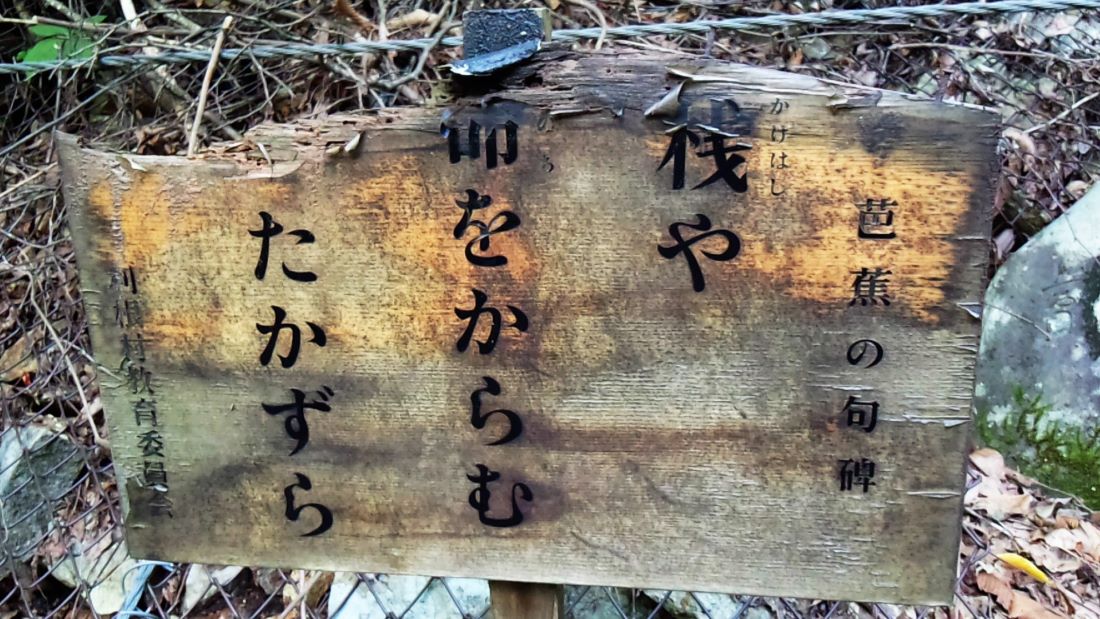 芭蕉の句碑
桟や
かけはし
命をからむ
たかずら
村教育委員会